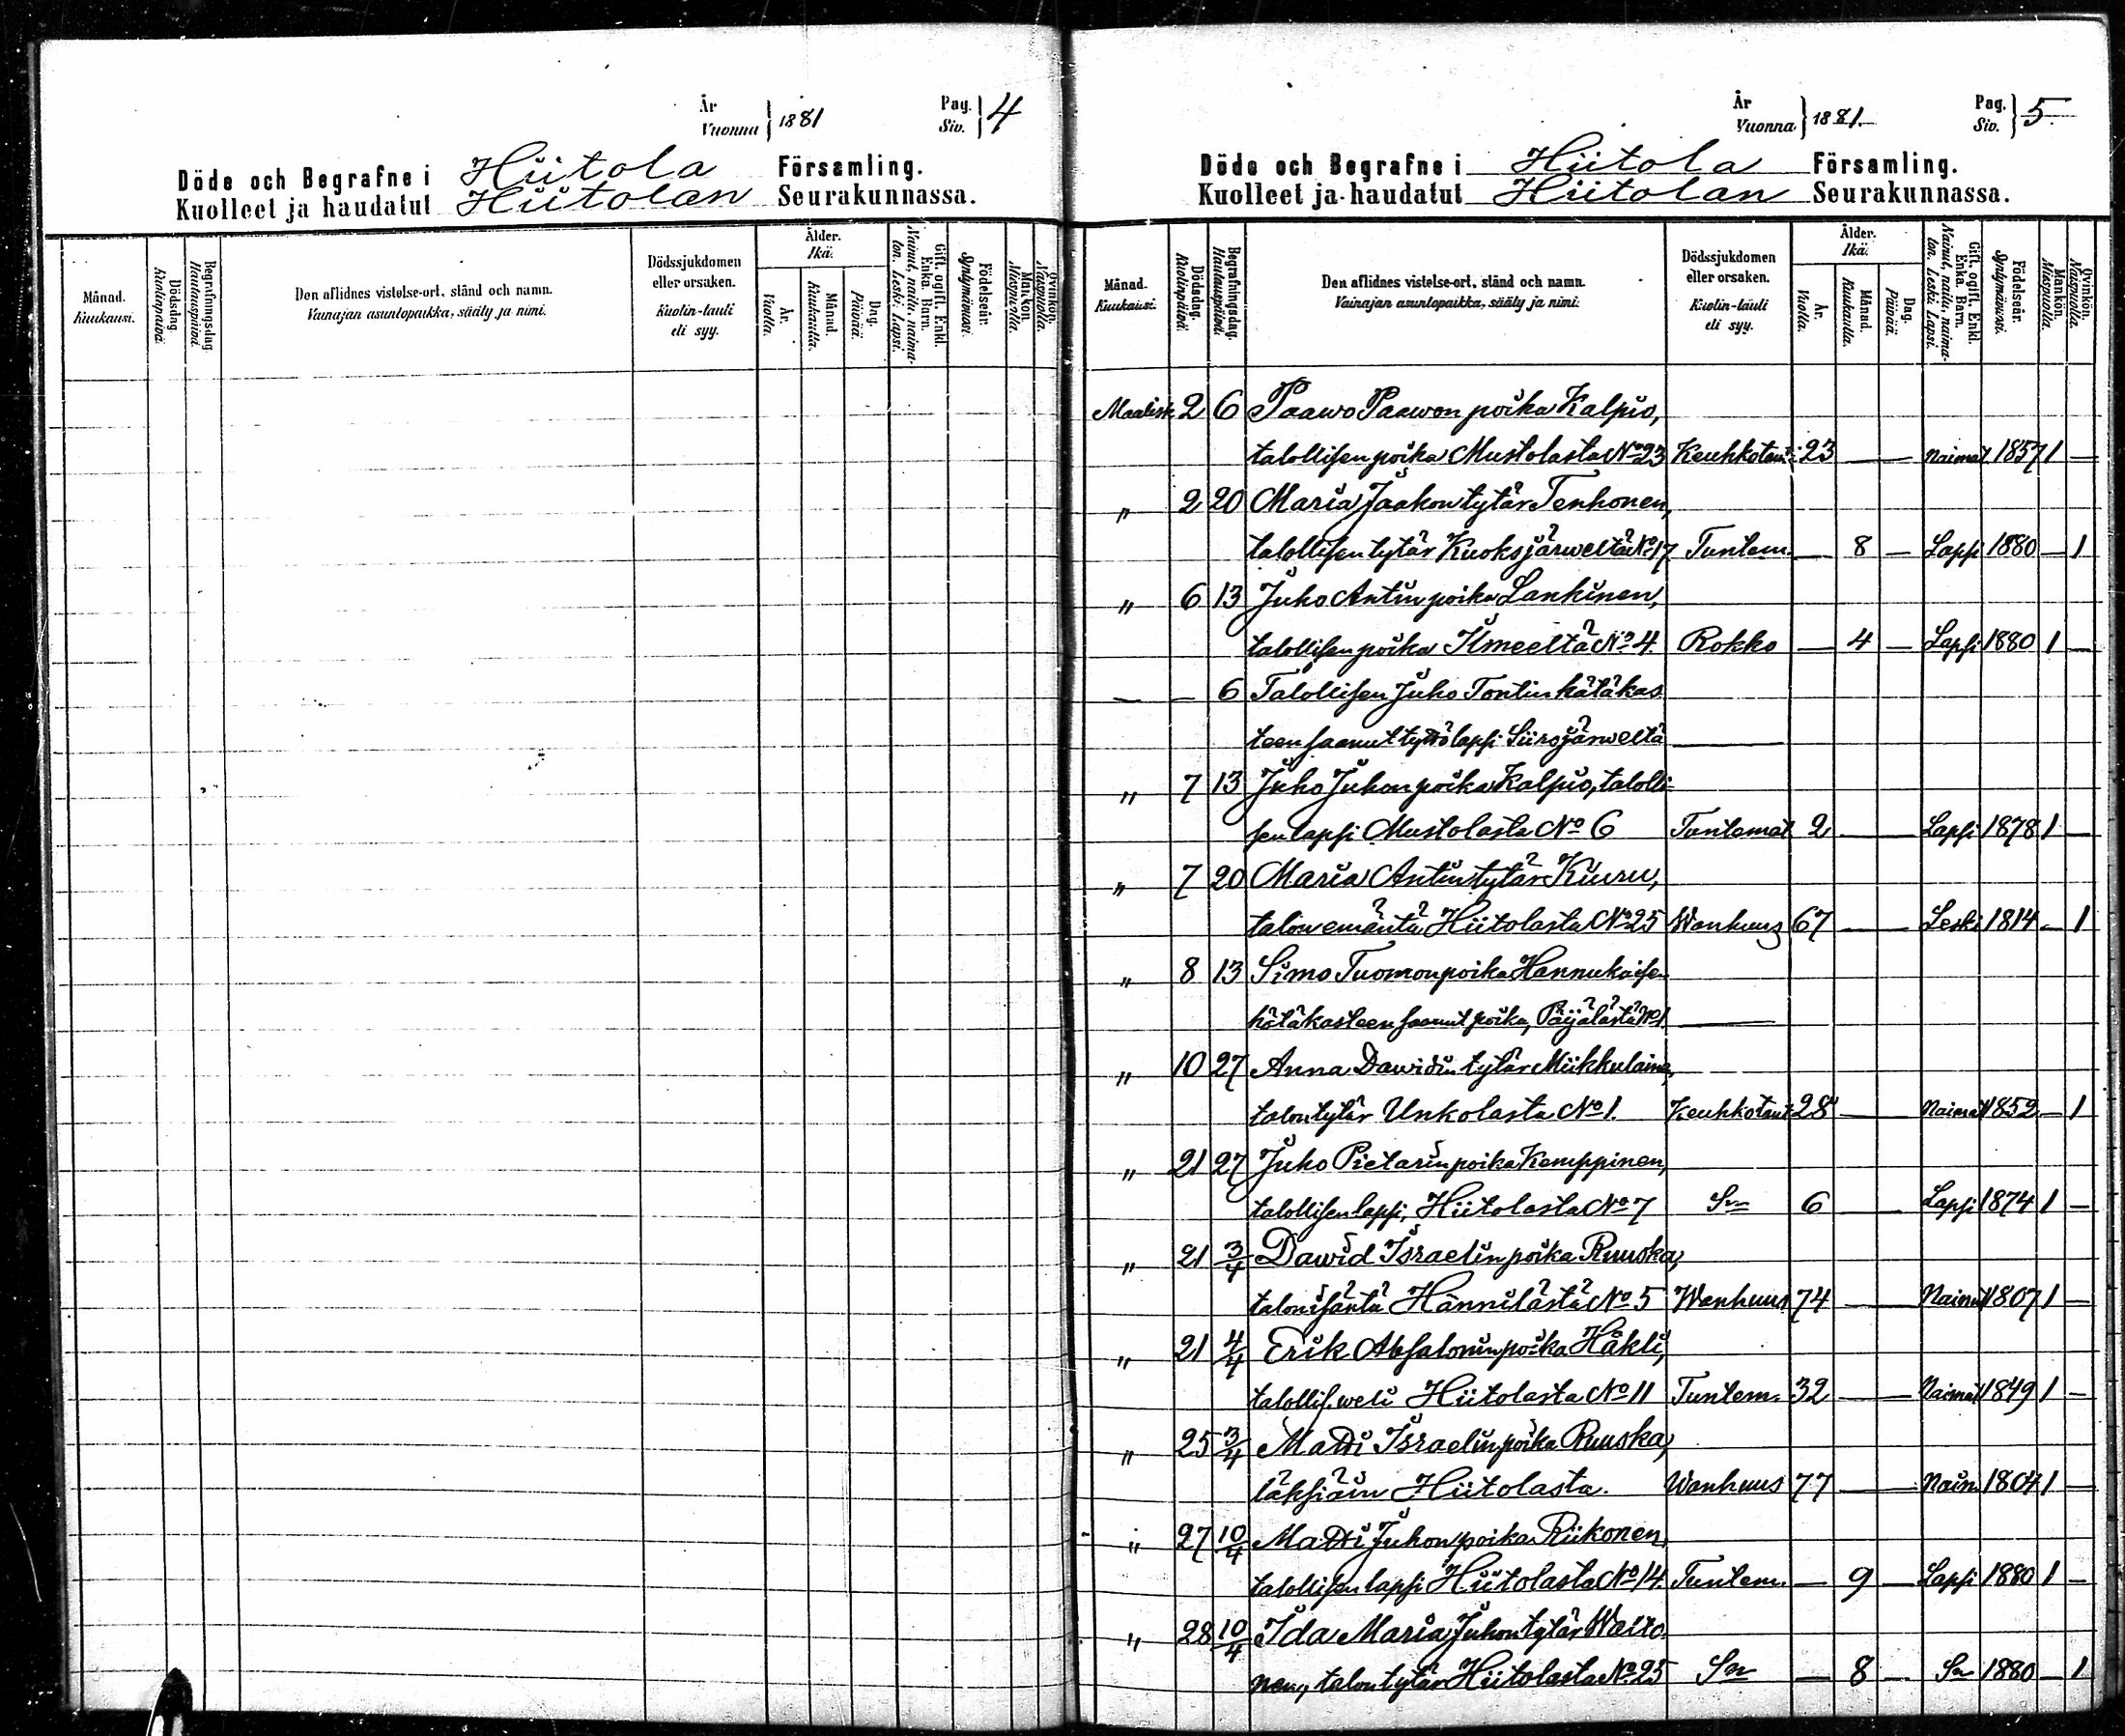 År
Vuonna } 1881
Pag.
Siv. } 4
Döde och Begrafne i Hiitola Församling.
Kuolleet ja haudatut Hiitolan Seurakunnassa.
Månad. Kuukausi.
Dödsdag. Kuolinpäivä.
Begrafningsdag. Hautauspäivä.
Den aflidnes vistelse-ort, stånd och namn.
Vainajan asuntopaikka, sääty ja nimi.
Dödssjukdomen eller orsaken.
Kuolin-tauti eli syy.
Ålder. Ikä.
År. Vuotta.
Månad. Kuukautta.
Dag. Päivää.
Gift, ogift, Enkl. Enka. Barn.
Nainut, naitu, naimaton. Leski. Lapsi.
Födelseår. Syntymävuosi.
Mankön. Miespuolta.
Qvinkön. Naispuolta.
År
Vuonna } 1881.
Pag.
Siv. } 5.
Döde och Begrafne i Hiitola Församling.
Kuolleet ja haudatut Hiitolan Seurakunnassa.
Månad. Kuukausi.
Dödsdag. Kuolinpäivä.
Begrafningsdag. Hautauspäivä.
Den aflidnes vistelse-ort, stånd och namn.
Vainajan asuntopaikka, sääty ja nimi.
Dödssjukdomen eller orsaken.
Kuolin-tauti eli syy.
Ålder. Ikä.
År. Vuotta.
Månad. Kuukautta.
Dag. Päivää.
Gift, ogift, Enkl. Enka. Barn.
Nainut, naitu, naimaton. Leski. Lapsi.
Födelseår. Syntymävuosi.
Mankön. Miespuolta.
Qvinkön. Naispuolta.
Maalisk. 2 6 Paawo Paawon poika Kalpio,
talollisen poika Mustolasta No 23 Keuhkotauti 23 — Naimat. 1857 1 —
" 2 20 Maria Jaakon tytär Tenhonen,
talollisen tytär Kuoksjärweltä No 17 Tuntem. — 8 — Lapsi 1880 — 1
" 6 13 Juho Antin poika Lankinen,
talollisen poika Ilmeeltä No 4. Rokko — 4 — Lapsi 1880 1 —
— — 6 Talollisen Juho Tontin hätäkas
teen saanut tyttölapsi Siirojärweltä —
" 7 13 Juho Juhon poika Kalpio, talolli-
sen lapsi Mustolasta No 6 Tuntemat 2 — Lapsi 1878 1 —
" 7 20 Maria Antin tytär Kiuru,
talon emäntä Hiitolasta No 25 Wanhuus 67 — Leski 1814 — 1
" 8 13 Simo Tuomon poika Hannukaisen
hätäkasteen saanut poika, Päijälästä No 1 —
" 10 27 Anna Dawidin tytär Miikkulaine,
talon tytär Unkolasta No 1. Keuhkotaut 28 — Naimat 1852 — 1
" 21 27 Juho Pietarin poika Kemppinen,
talollisen lapsi, Hiitolasta No 7 Sm 6 — Lapsi 1874 1 —
" 21 3/4 Dawid Israelin poika Ruuska,
talon isäntä Hännilästä No 5 Wanhuus 74 — Nainut 1807 1 —
" 21 4/4 Erik Absalonin poika Häkli,
talollis. weli Hiitolasta No 11 Tuntem. 32 — Naimat 1849 1 —
" 25 3/4 Matti Israelin poika Ruuska,
läksiäin Hiitolasta. Wanhuus 77 — Nain. 1804 1 —
" 27 10/4 Matti Juhon poika Riikonen,
talollisen lapsi Hiitolasta No 14. Tuntem. — 9 — Lapsi 1880 1 —
" 28 10/4 Ida Maria Juhon tytär Walto
nen, talon tytär Hiitolasta No 25 Sm — 8 — Sm 1880 — 1